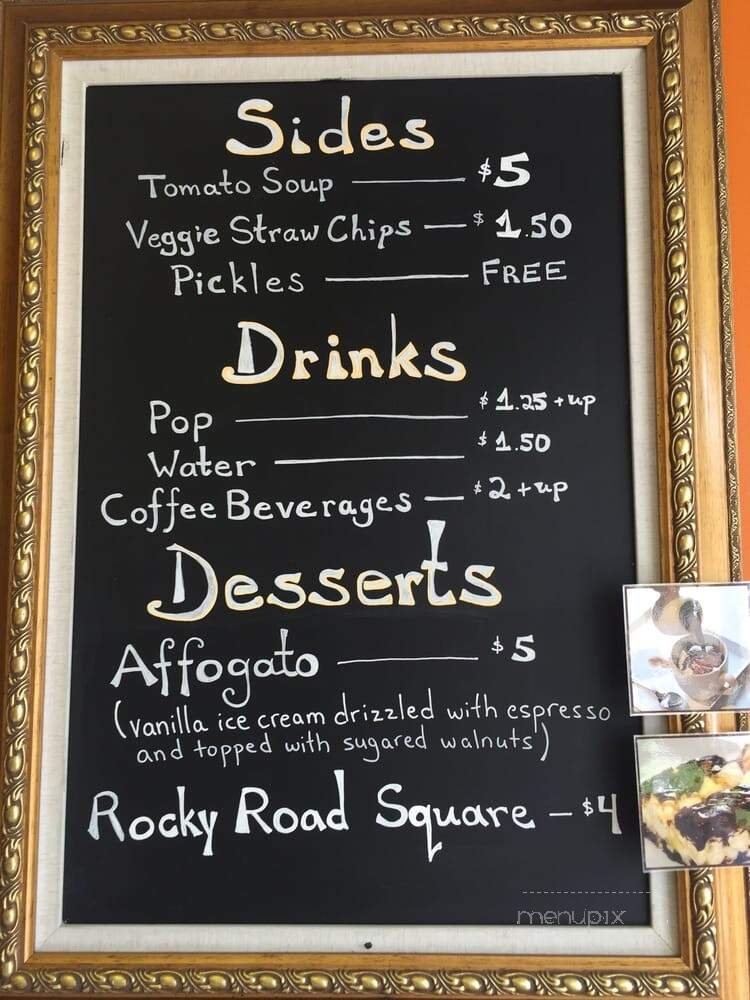 Sides
Tomato Soup — $5
Veggie Straw Chips — $1.50
Pickles — FREE
Drinks
Pop — $1.25 + up
Water — $1.50
Coffee Beverages — $2 + up
Desserts
Affogato — $5
(vanilla ice cream drizzled with espresso
and topped with sugared walnuts)
Rocky Road Square — $4
menupix